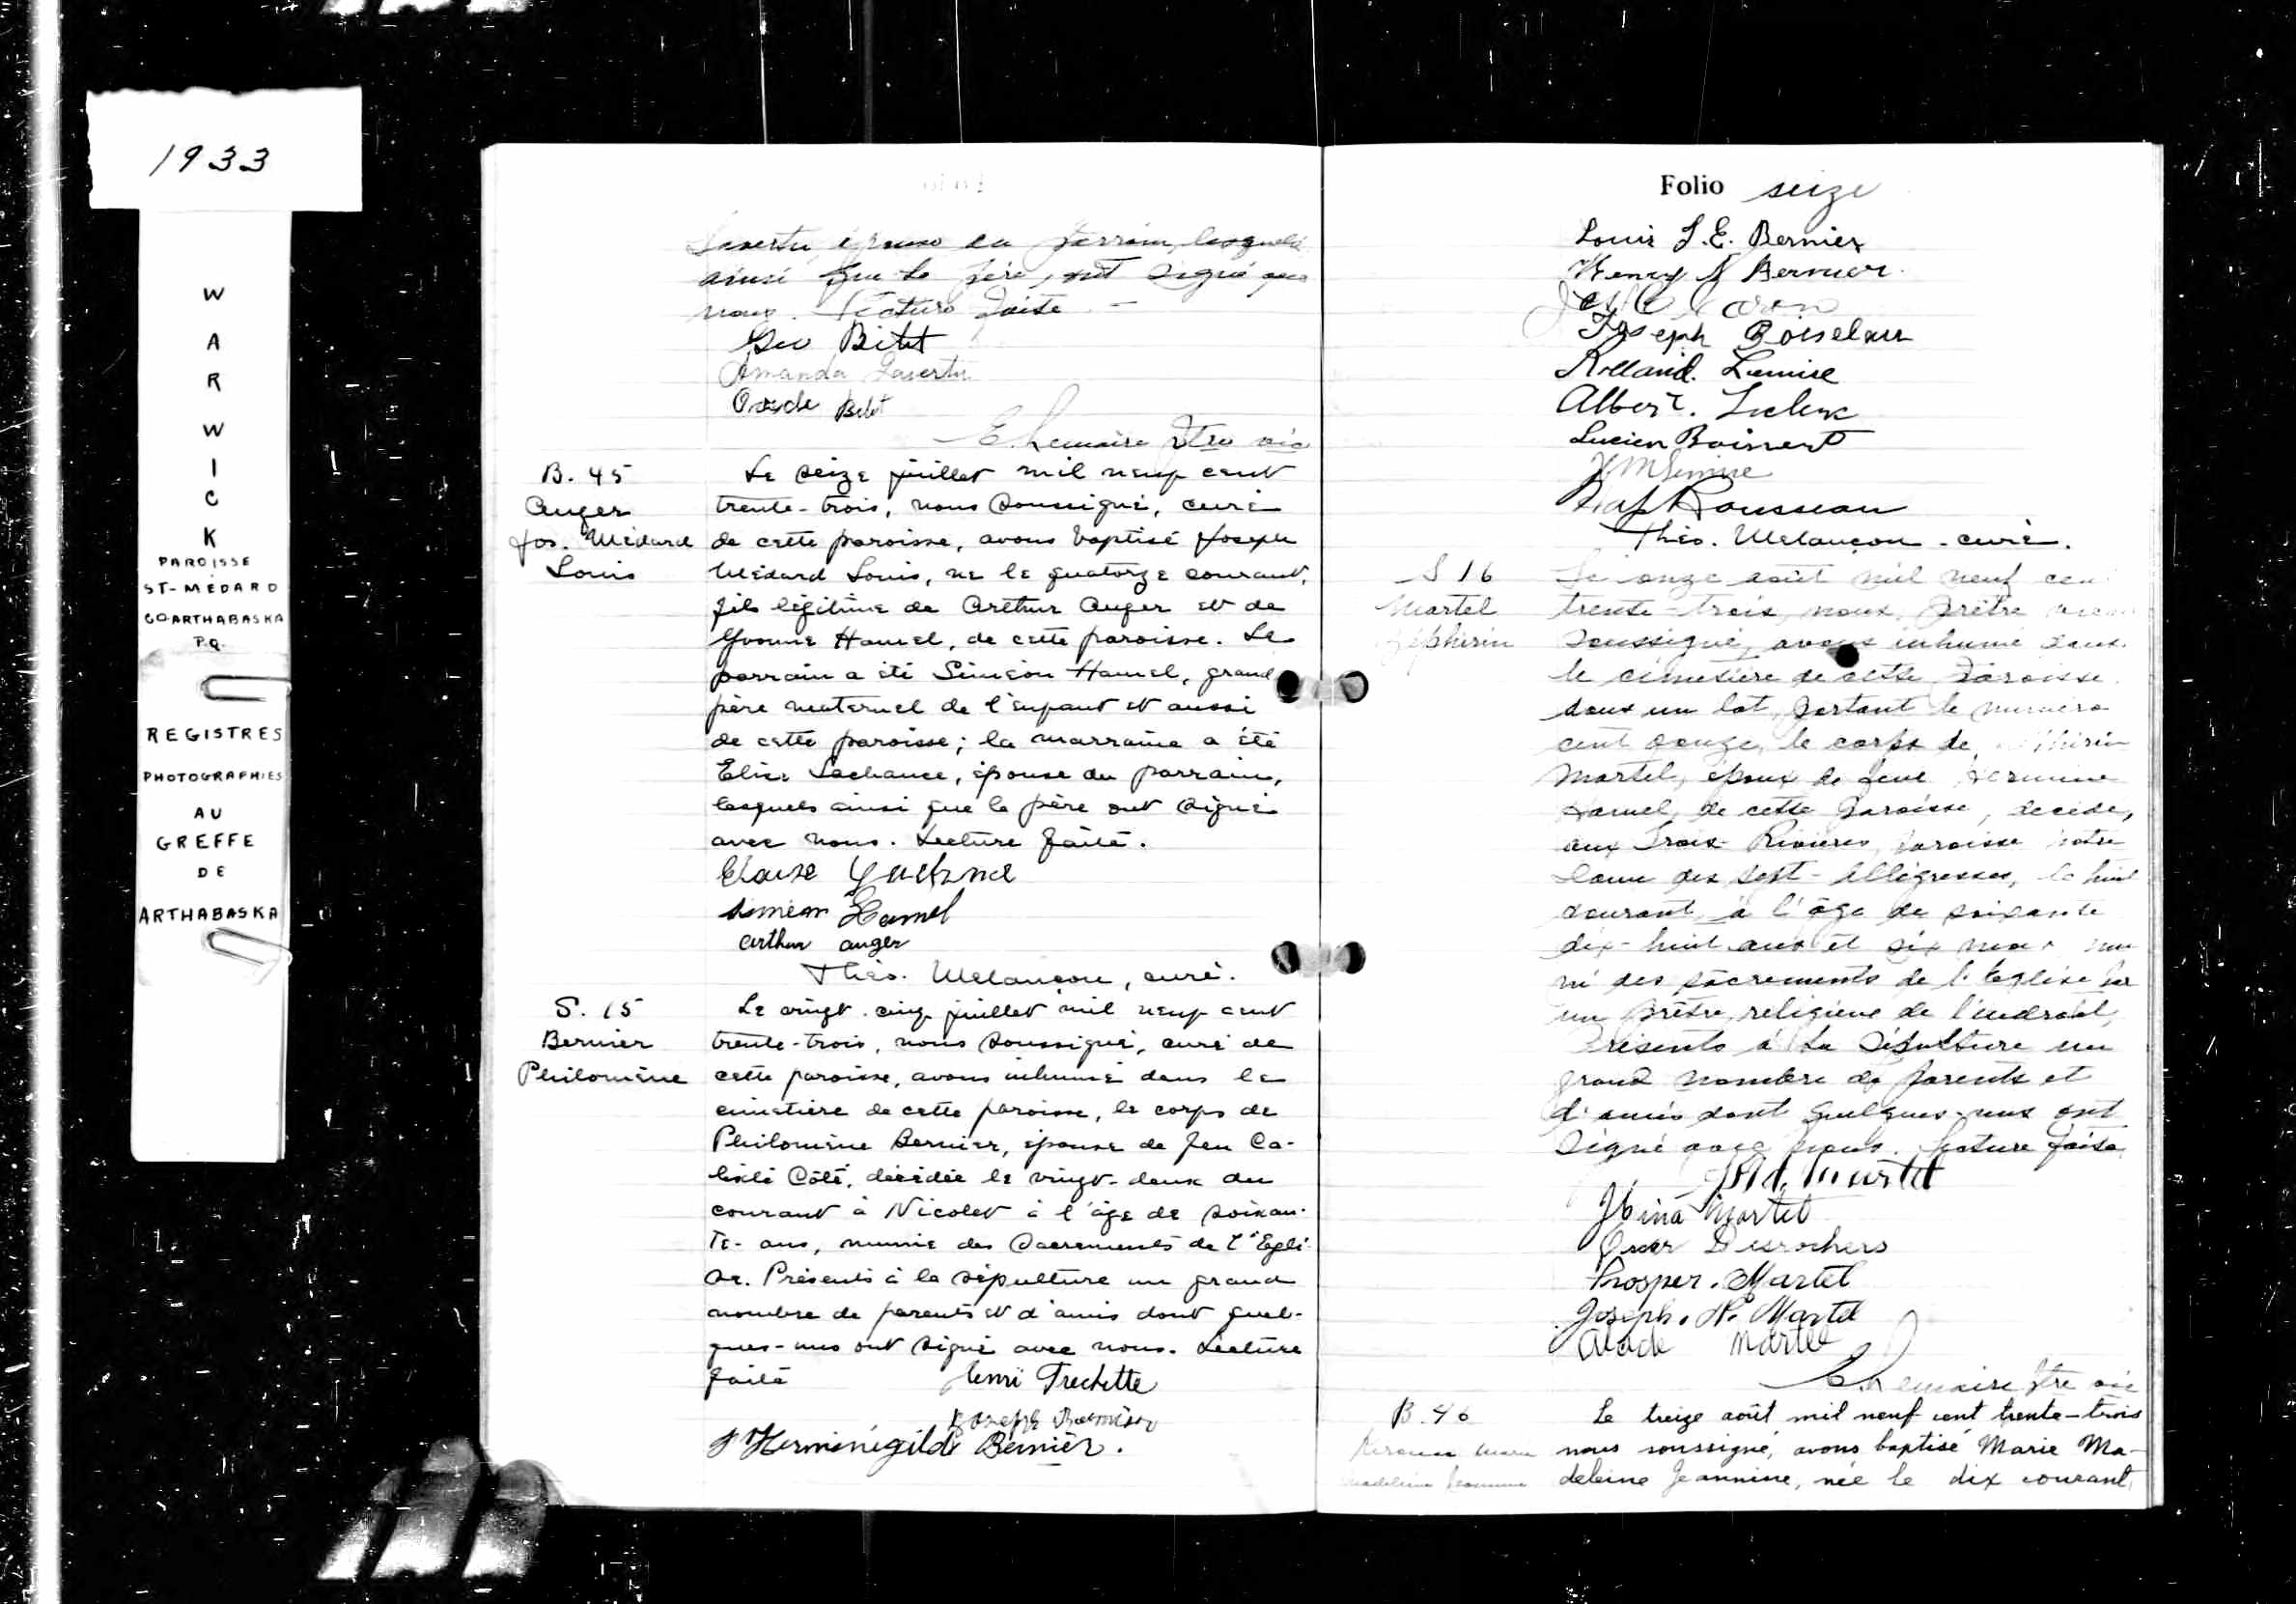 1933
W
A
R
W
I
C
K
PAROISSE
ST-MÉDARD
CO. ARTHABASKA
P.Q.
REGISTRES
PHOTOGRAPHIÉS
AU
GREFFE
DE
ARTHABASKA
épouse du parrain, lesquels
ainsi que le père, ont signé avec
nous. Lecture faite.
Geo Bilet
Amanda Lavertu
E. Lemaire Ptre vic
B. 45
Auger
Jos. Médard
Louis
Le seize juillet mil neuf cent
trente-trois, nous soussigné, curé
de cette paroisse, avons baptisé Joseph
Médard Louis, né le quatorze courant,
fils légitime de Arthur Auger et de
Yvonne Hamel, de cette paroisse. Le
parrain a été Siméon Hamel, grand
père maternel de l'enfant et aussi
de cette paroisse; la marraine a été
Elise Lachance, épouse du parrain,
lesquels ainsi que le père ont signé
avec nous. Lecture faite.
Siméon Hamel
Arthur Auger
Théo. Melançon, curé.
S. 15
Bernier
Philomène
Le vingt-cinq juillet mil neuf cent
trente-trois, nous soussigné, curé de
cette paroisse, avons inhumé dans le
cimetière de cette paroisse, le corps de
Philomène Bernier, épouse de feu Ca-
lixte Côté, décédée le vingt-deux du
courant à Nicolet à l'âge de soixan-
te- ans, munie des Sacrements de l'Egli-
se. Présents à la sépulture un grand
nombre de parents et d'amis dont quel-
ques-uns ont signé avec nous. Lecture
faite
Henri Frechette
Joseph
Herminégilde Bernier.
Folio seize
Louis J. E. Bernier
Henry J Bernier.
Joseph Boisclair
Rolland. Lemire
Albert. Leclerc
Lucien Boisvert
Rousseau
Théo. Melançon - curé.
S 16
Martel
Zéphirin
Le onze août mil neuf cent
trente-trois, nous, prêtre vicaire
soussigné, avons inhumé dans
le cimetière de cette paroisse
dans un lot, portant le numéro
cent douze, le corps de Zéphirin
Martel, époux de feue Hermine
Hamel, de cette Paroisse, décédé,
aux Trois-Rivières, paroisse Notre
Dame des Sept-Allégresses, le huit
courant, à l'âge de soixante
dix-huit ans et six mois mu-
ni des sacrements de l'Eglise par
un prêtre religieux de l'endroit,
Présents à la Sépulture un
grand nombre de parents et
d'amis dont quelques-uns ont
signé avec nous. Lecture faite
Martel
Martel
Omer Desrochers
Prosper. Martel
Joseph. H. Martel
Martel
E. Lemaire Ptre vic
B. 46
Marie
Madeleine Jeannine
Le treize août mil neuf cent trente-trois
nous soussigné, avons baptisé Marie Ma-
deleine Jeannine, née le dix courant,